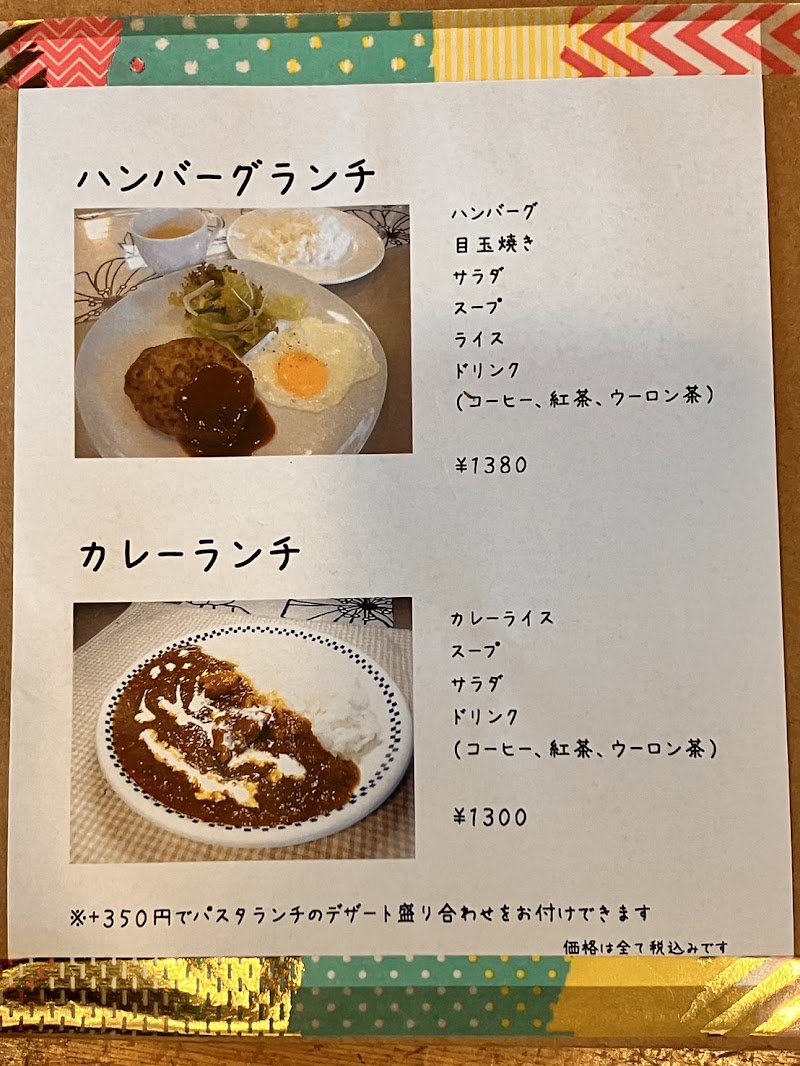 ハンバーグランチ
ハンバーグ
目玉焼き
サラダ
スープ
ライス
ドリンク
(コーヒー、紅茶、ウーロン茶)
¥1380
カレーランチ
カレーライス
スープ
サラダ
ドリンク
(コーヒー、紅茶、ウーロン茶)
¥1300
※+350円でパスタランチのデザート盛り合わせをお付けできます
価格は全て税込みです